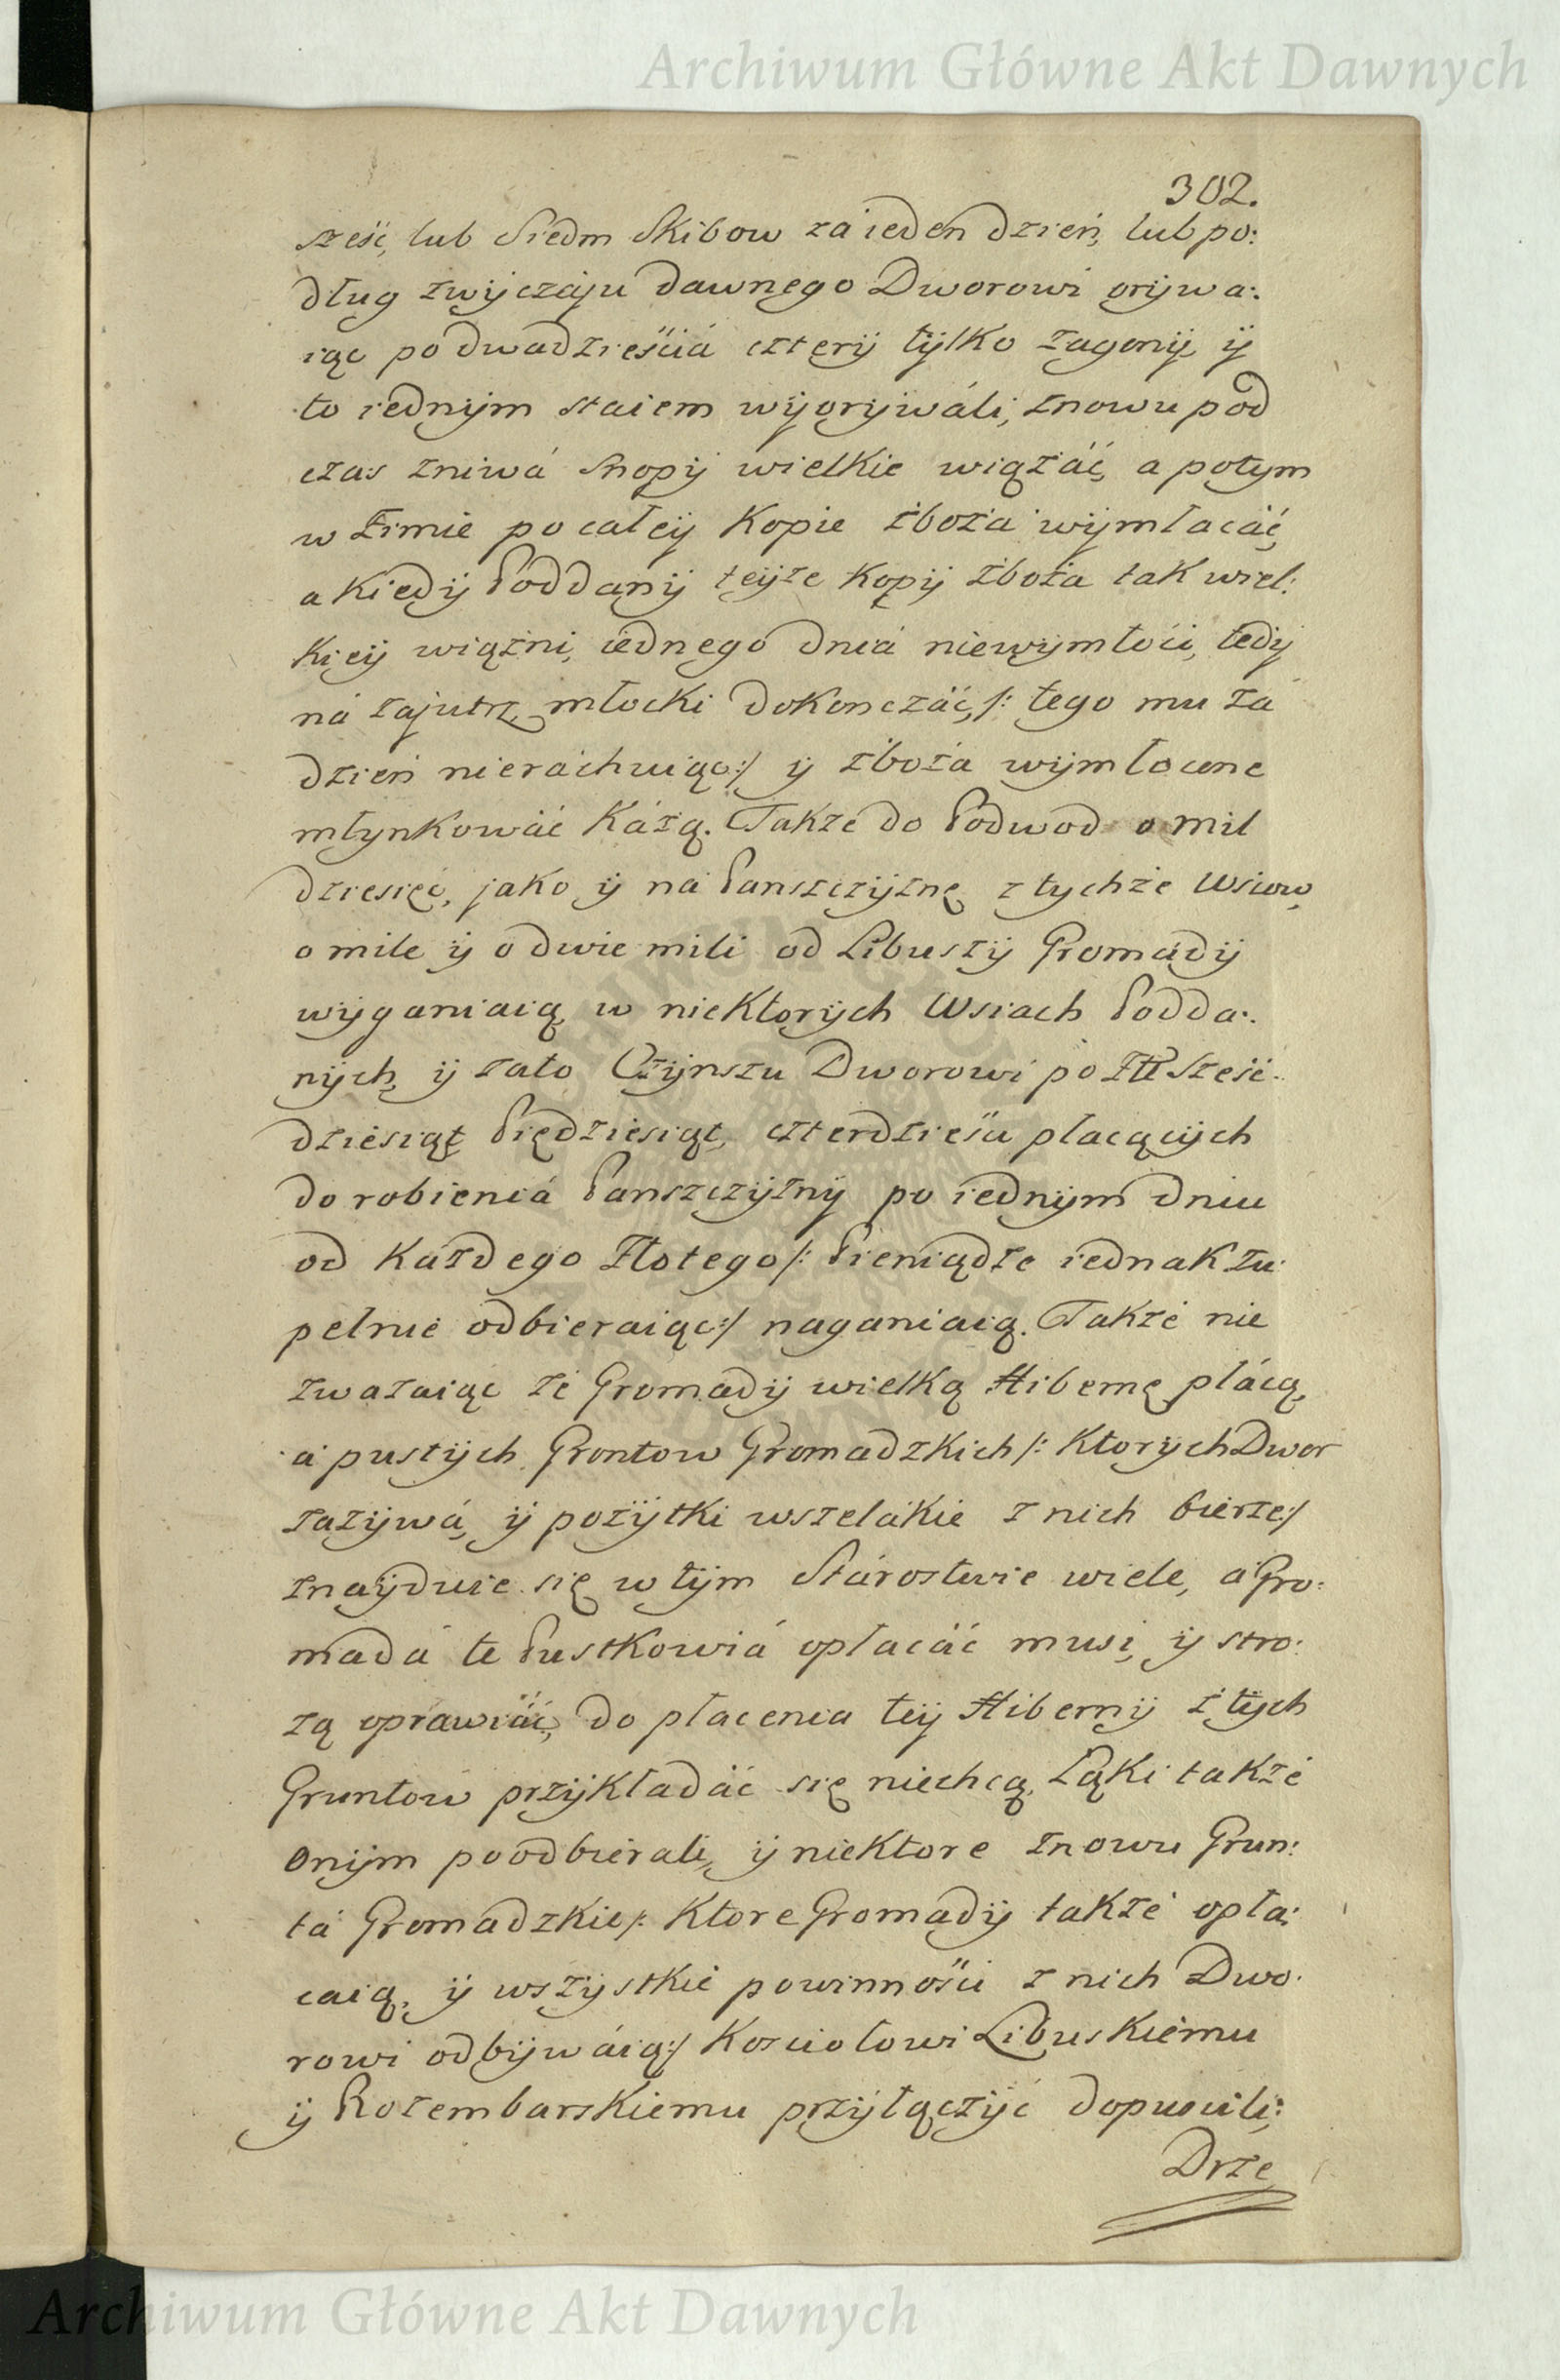 Archiwum Główne Akt Dawnych
302.
sześć, lub Siedm Skibow zá ieden dzień, lub po:
dług zwyczáju dawnego Dworowi orywa:
iąc po dwadzieściá cztery tylko zagony, y
to iednym staiem wyorywáli, znowu pod
czas zniwá Snopy wielkie wiązáć, a potym
w Zimie po całey Kopie zboża wymłacáć,
a kiedy Poddany teyże Kopy zboża tak wiel:
kiey wiązni, iednego dniá niewymłóci, tedy
ná zajutrz młocki dokonczáć, /: tego mu zá
dzień nieráchuiąc :/ y zboża wymłocone
młynkowáć każą. Także do Podwod o mil
dziesięć, jako y ná Panszczyznę z tychże Wsiow,
o mile y o dwie mili od Libuszy Gromády
wyganiaią, w niektorych Wsiach Podda:
nych, y zato Czynszu Dworowi po Złł sześć-
dziesiąt, Pięдziesiąt, czterdzieści płacących
do robieniá Panszczyzny po iednym dniu
od każdego Złotego /: Pieniądze iednak zu:
pełnie odbieraiąc :/ naganiaią. Także nie
zważaiąc że Gromady wielką Hibernę płácą,
á pustych Grontow Gromadzkich /: Ktorych Dwor
zażywá, y pożytki wszelákie z nich bierze :/
znayduie się w tym Stárostwie wiele, á Gro:
madá te Pustkowiá opłacáć musi, y stro:
żą oprawiáć, do płacenia tey Hiberny z tych
Gruntow przykładáć się niechcą, Łąki także
onym poodbierali, y niektore znowu Grun:
tá Gromadzkie /: Ktore Gromady także opła:
caią, y wszystkie powinności z nich Dwo:
rowi odbywáią :/ Kościołowi Libuskiemu
y Rozembarskiemu przyłączyć dopuscili;
Drze
Archiwum Główne Akt Dawnych